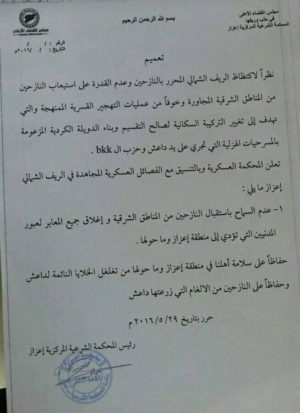 بسم الله الرحمن الرحيم
مجلس القضاء الأعلى
في حلب وريفها
المحكمة الشرعية المركزية إعزاز
الرقم: / /
التاريخ: / / ٢٠١٦م
تعميم
نظراً لاكتظاظ الريف الشمالي المحرر بالنازحين وعدم القدرة على استيعاب النازحين
من المناطق الشرقية المجاورة وخوفاً من عمليات التهجير القسرية الممنهجة والتي
تهدف إلى تغيير التركيبة السكانية لصالح التقسيم وبناء الدويلة الكردية المزعومة
بالمسرحيات الهزلية التي تجري على يد داعش وحزب ال bkk .
تعلن المحكمة العسكرية وبالتنسيق مع الفصائل العسكرية المجاهدة في الريف الشمالي
إعزاز ما يلي :
١- عدم السماح باستقبال النازحين من المناطق الشرقية و إغلاق جميع المعابر لعبور
المدنيين التي تؤدي إلى منطقة إعزاز وما حولها .
حفاظاً على سلامة أهلنا في منطقة إعزاز وما حولها من تغلغل الخلايا النائمة لداعش
وحفاظاً على النازحين من الالغام التي زرعتها داعش
حرر بتاريخ ٢٩ / ٥ / ٢٠١٦ م
رئيس المحكمة الشرعية المركزية إعزاز